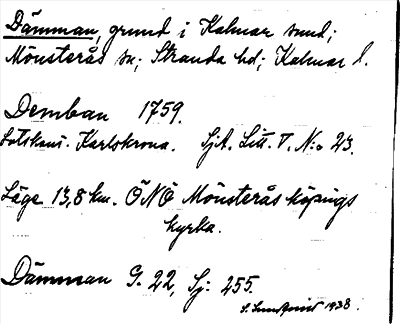 Dämman, grund i Kalmar sund;
Mönsterås sn; Stranda hd; Kalmar l.
Demban 1759.
Lotskont. Karlskrona. Sjk. Litt. V. N:o 23.
Läge 13,8 km. ÖNÖ Mönsterås köpings
kyrka.
Dämman G. 22, Sj: 255.
S. Sundqvist 1938.